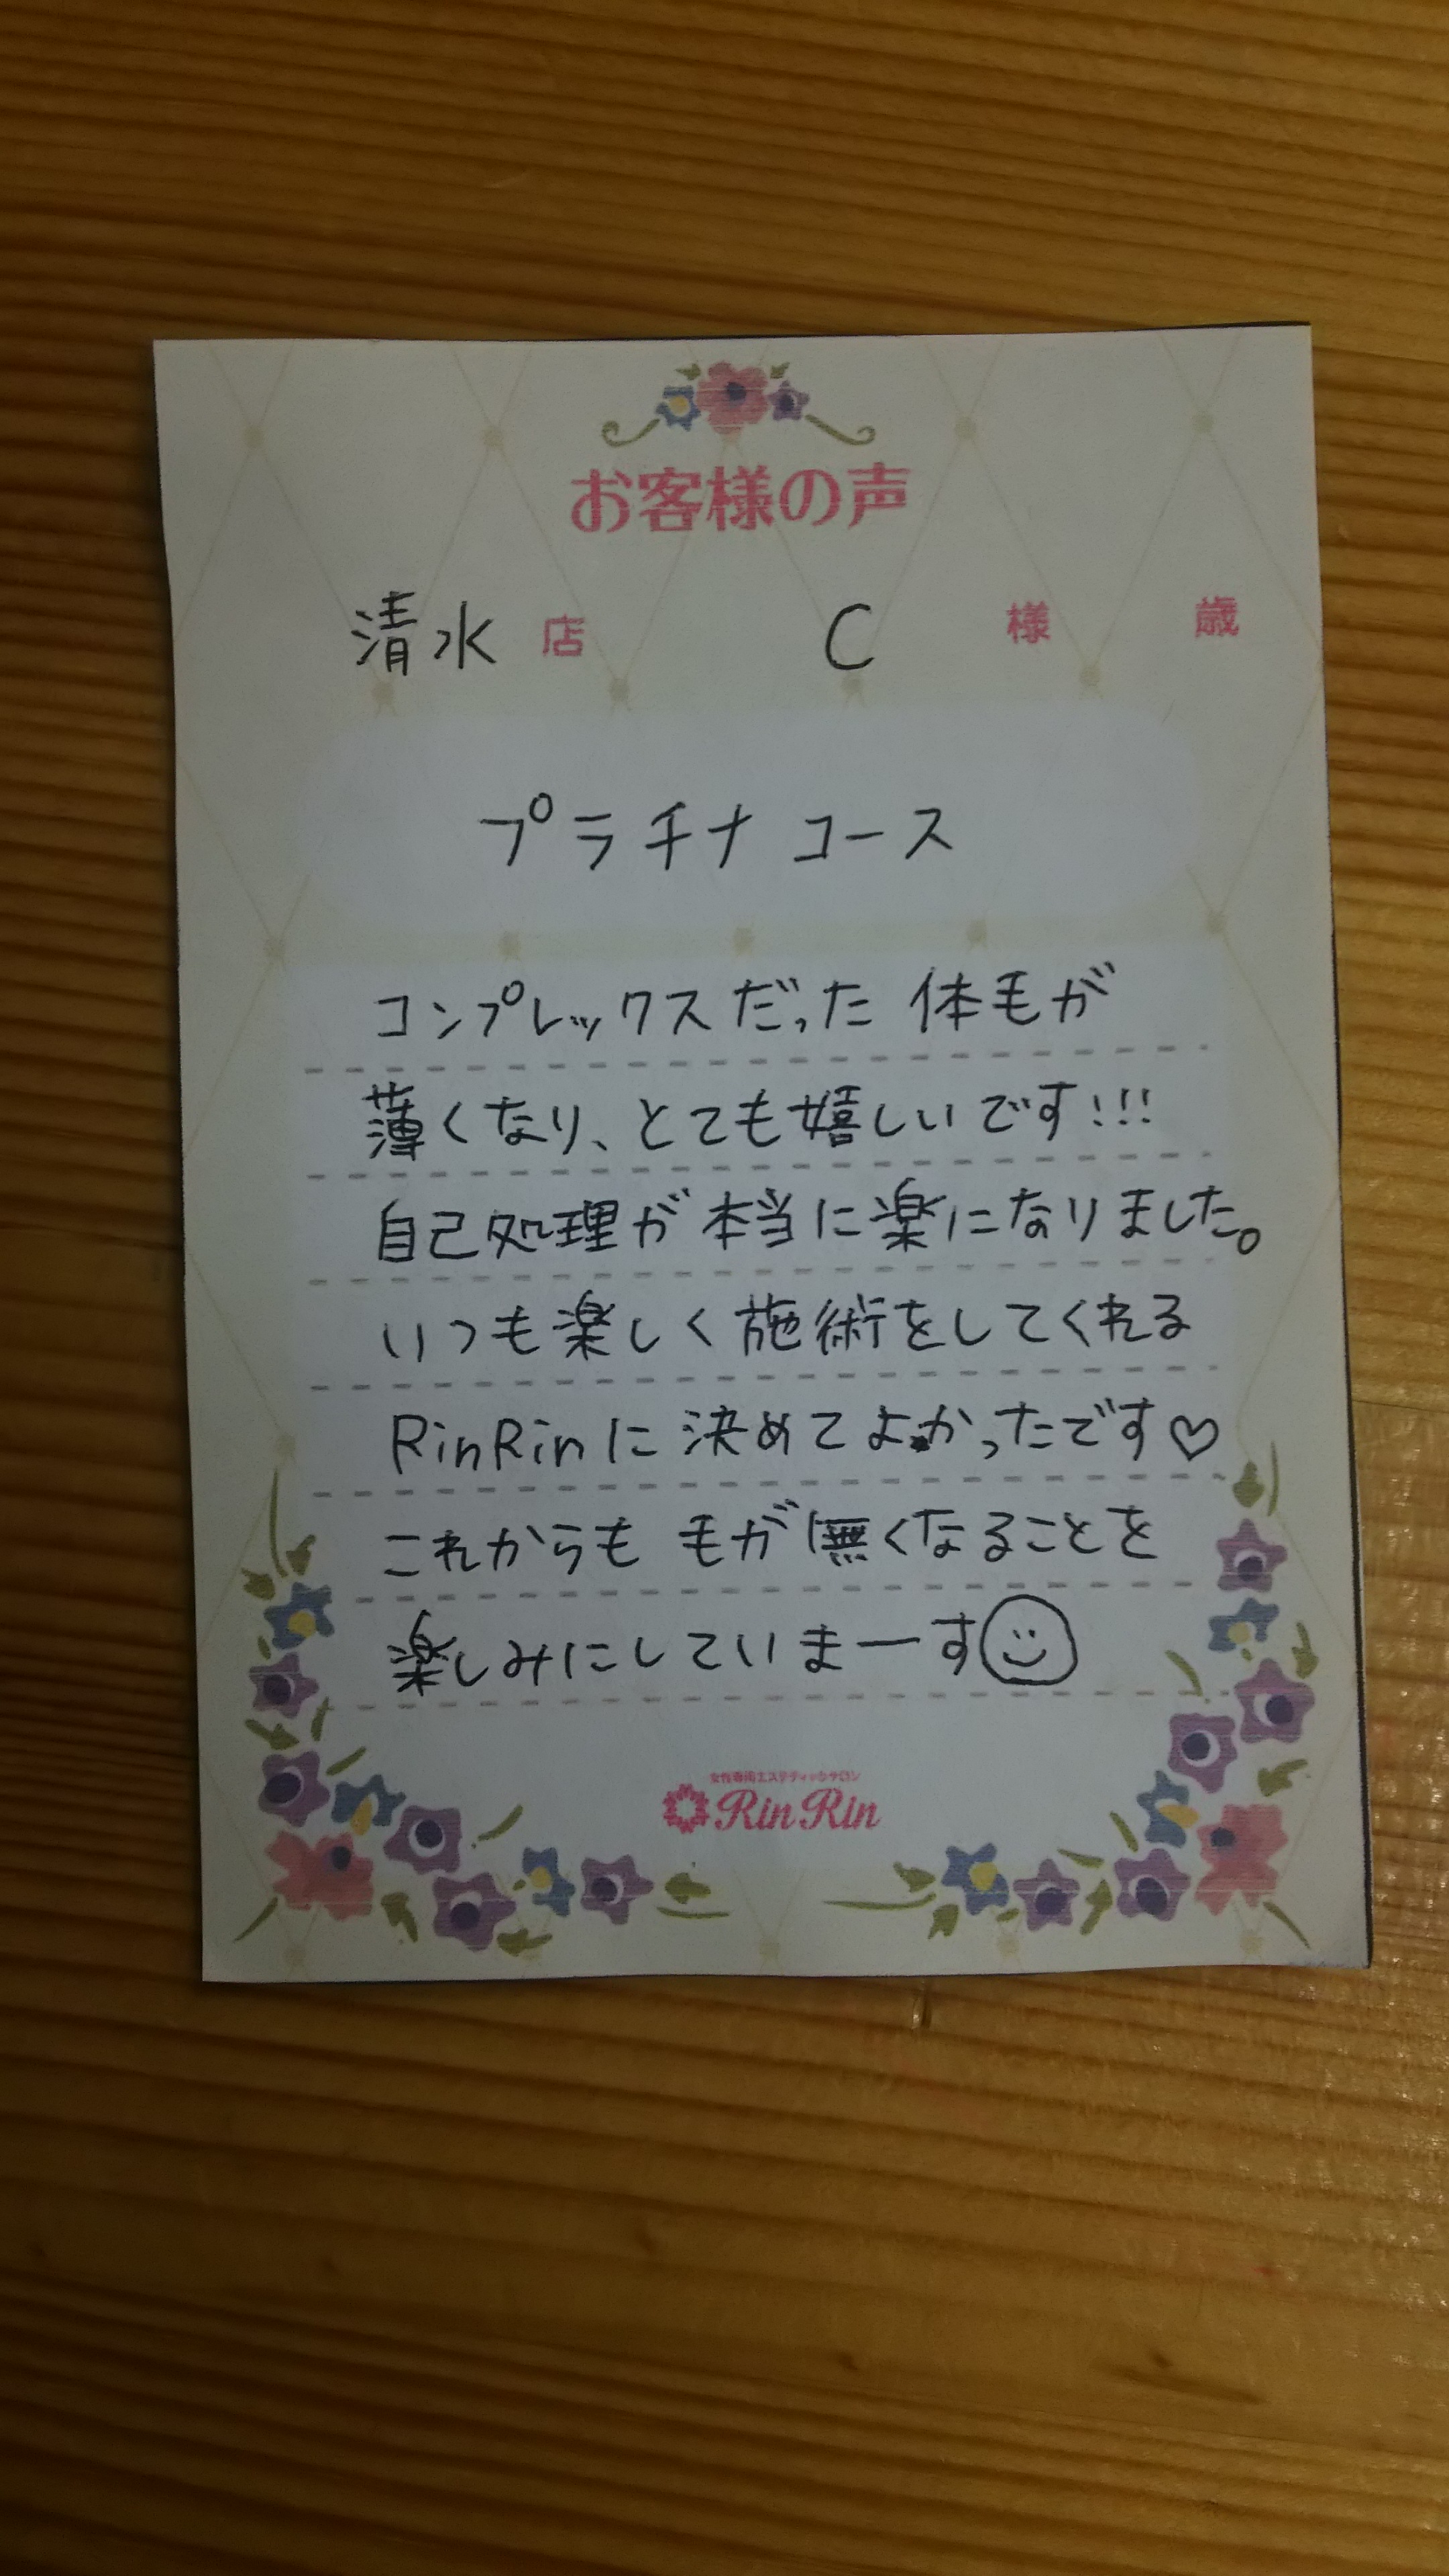 お客様の声
清水 店 C 様 歳
プラチナコース
コンプレックスだった体毛が
薄くなり、とても嬉しいです!!!
自己処理が本当に楽になりました。
いつも楽しく施術をしてくれる
RinRinに決めてよかったです♡
これからも毛が無くなることを
楽しみにしていまーす☺
女性専用エステティックサロン
RinRin